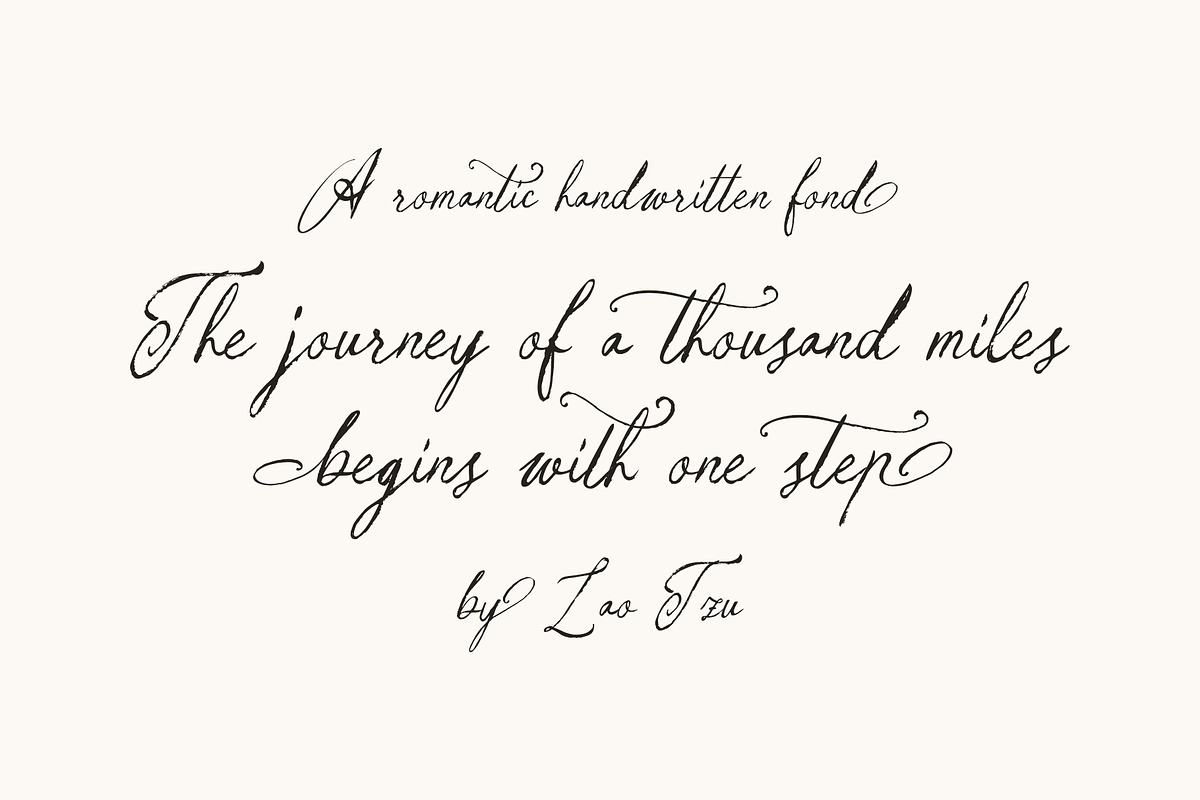 A romantic handwritten fond
The journey of a thousand miles
begins with one step
by Lao Tzu